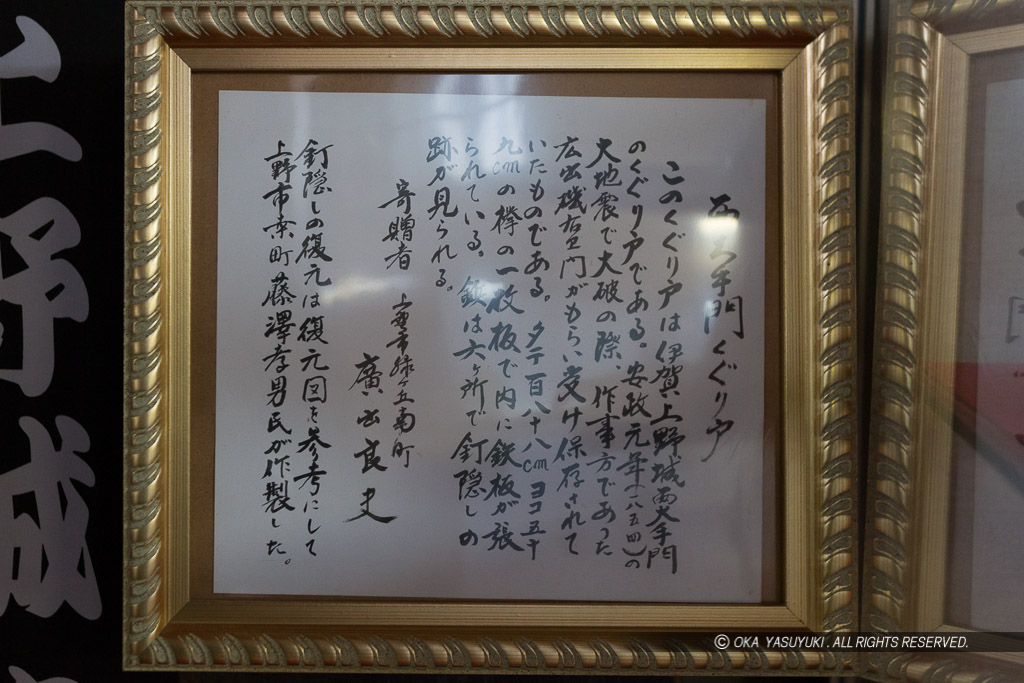 西大手門くぐり戸
このくぐり戸は伊賀上野城西大手門
のくぐり戸である。安政元年(一八五四)の
大地震で大破の際、作事方であった
広出磯右衛門がもらい受け保存されて
いたものである。タテ一百八十八cmヨコ五十
九cmの欅の一枚板で内に鉄板が張
られている。鋲は六ヶ所で釘隠しの
跡が見られる。
寄贈者 上野市緑ヶ丘南町
廣出良史
釘隠しの復元は復元図を参考にして
上野市東町藤澤孝男氏が作製した。
上野城
© OKA YASUYUKI. ALL RIGHTS RESERVED.